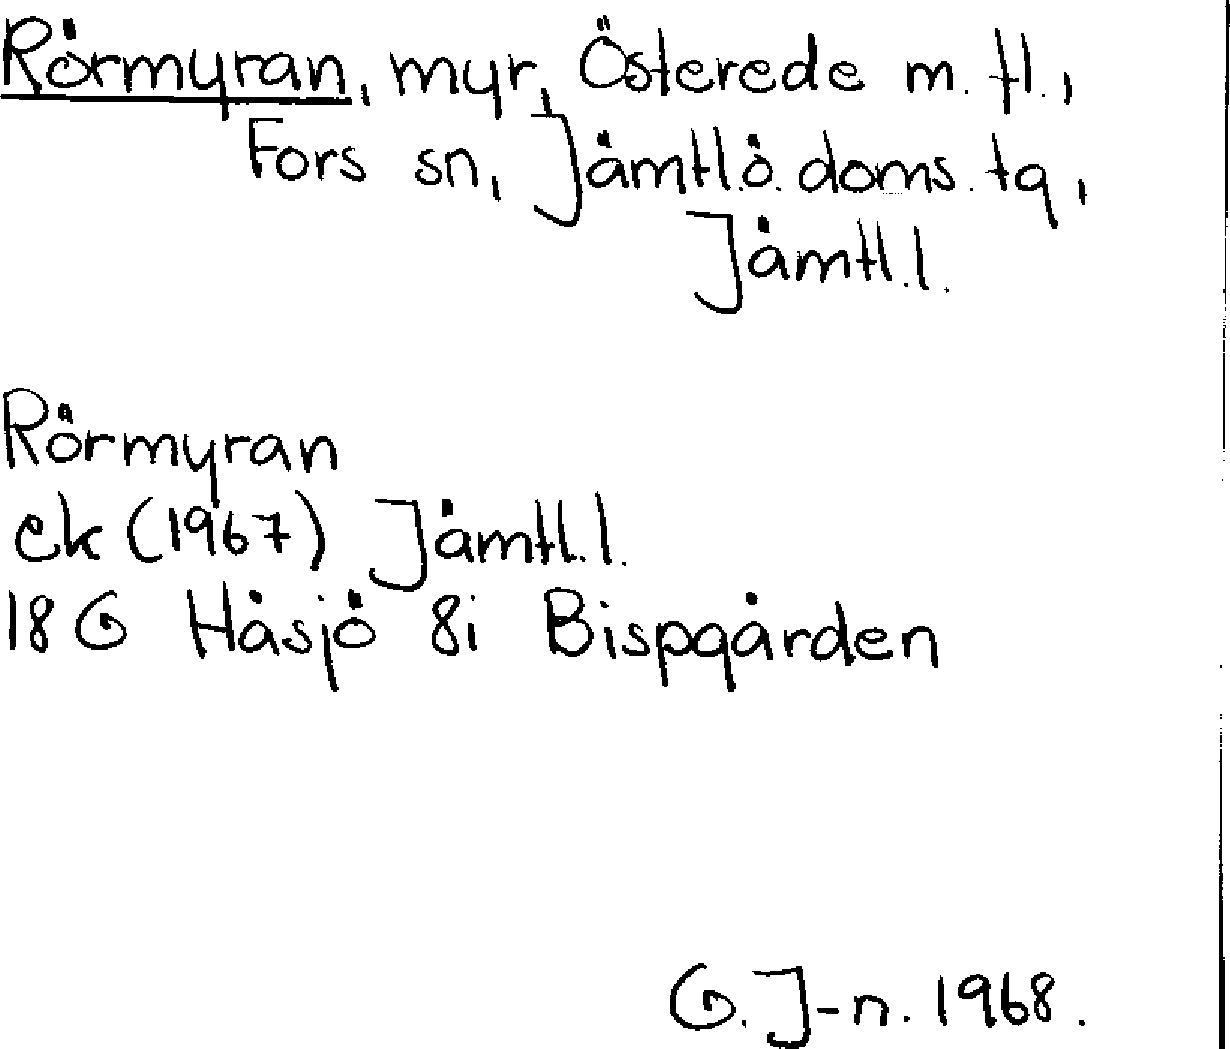 Rörmyran, myr, Österede m. fl.,
Fors sn, Jämtl.ö. doms. tg,
Jämtl. l.
Rörmyran
ek (1967) Jämtl. l.
18 G Håsjö 8i Bispgården
G. J-n. 1968.